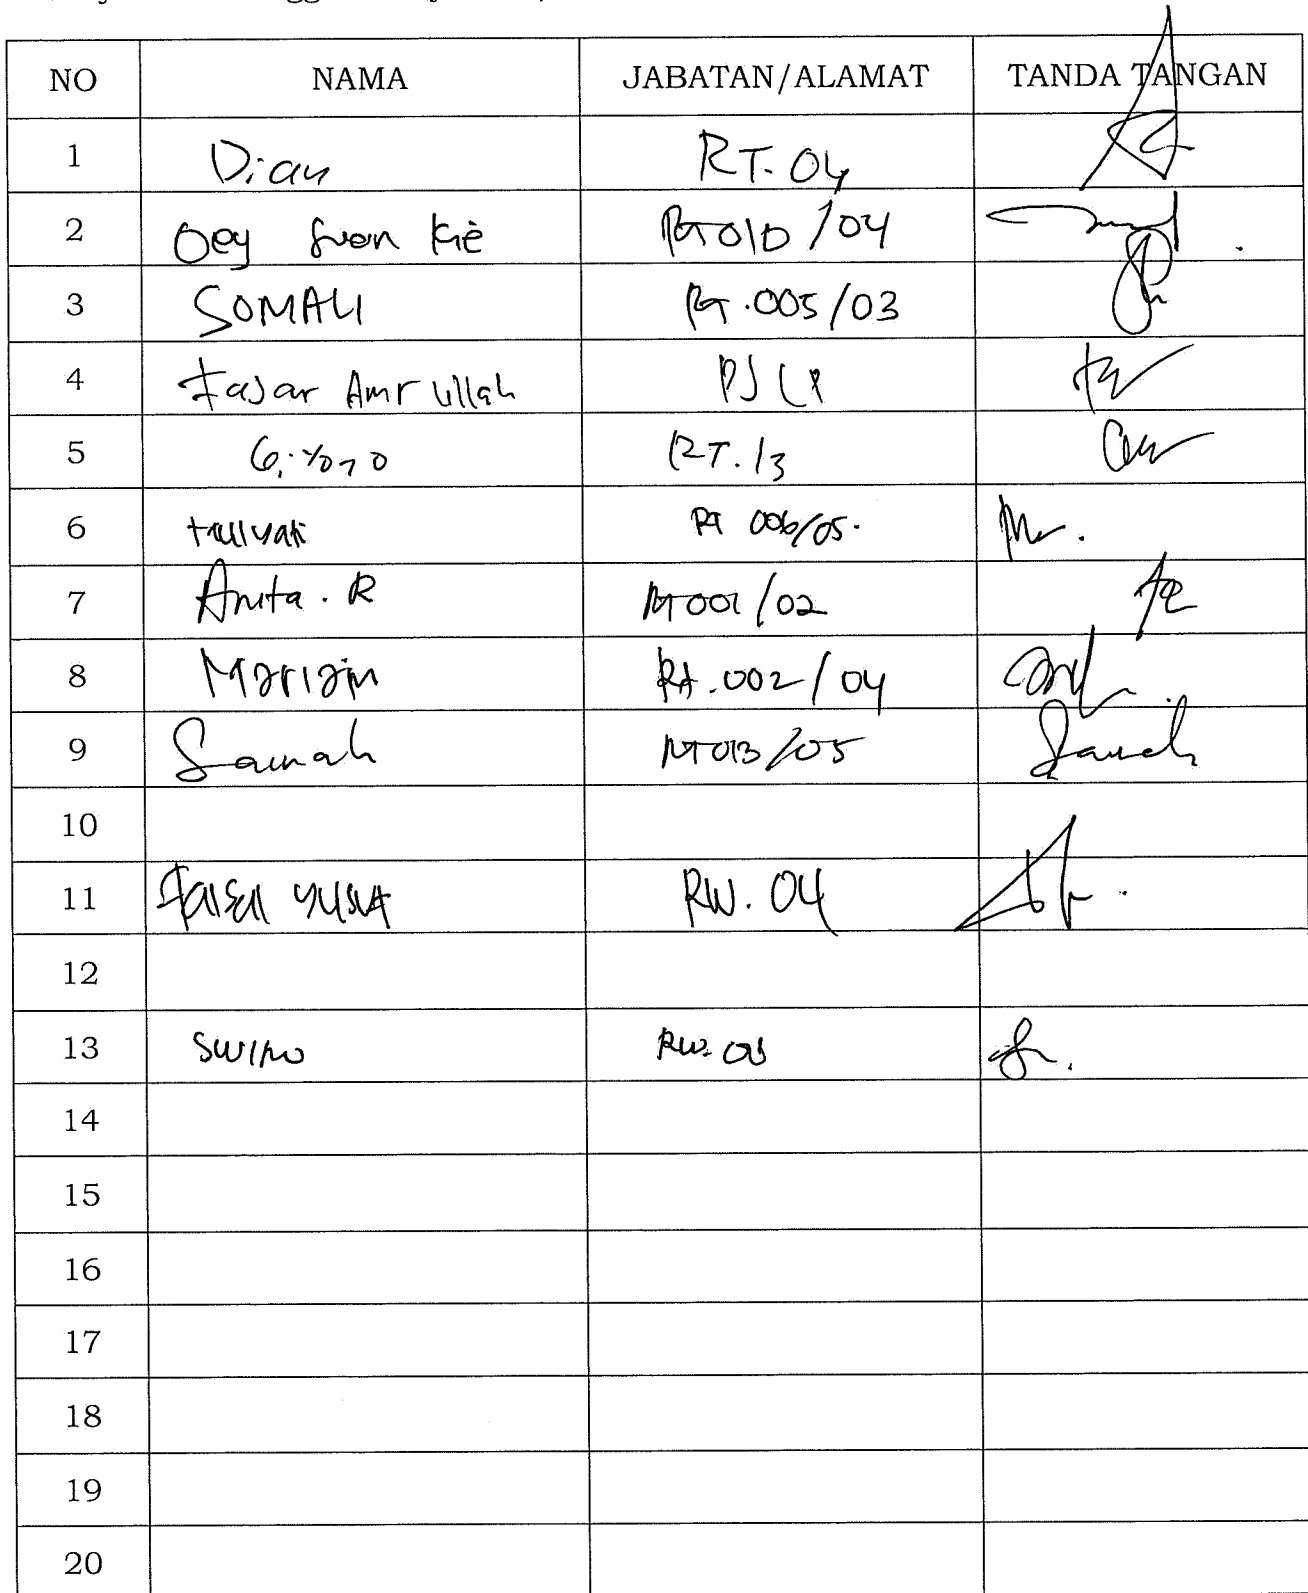 NO NAMA JABATAN/ALAMAT TANDA TANGAN
1 Dian RT. 04
2 Oey Suen Kie RT 010 / 04
3 SOMALI RT .005/03
4 Fajar Amrullah PJLP
5 Giyono RT. 13
6 RT 006/05.
7 Anita . R RT 001 /02
8 Mariam RT .002 / 04
9 Samah RT 013/05
10
11 Faisal YUSUF RW. 04
12
13 RW.
14
15
16
17
18
19
20